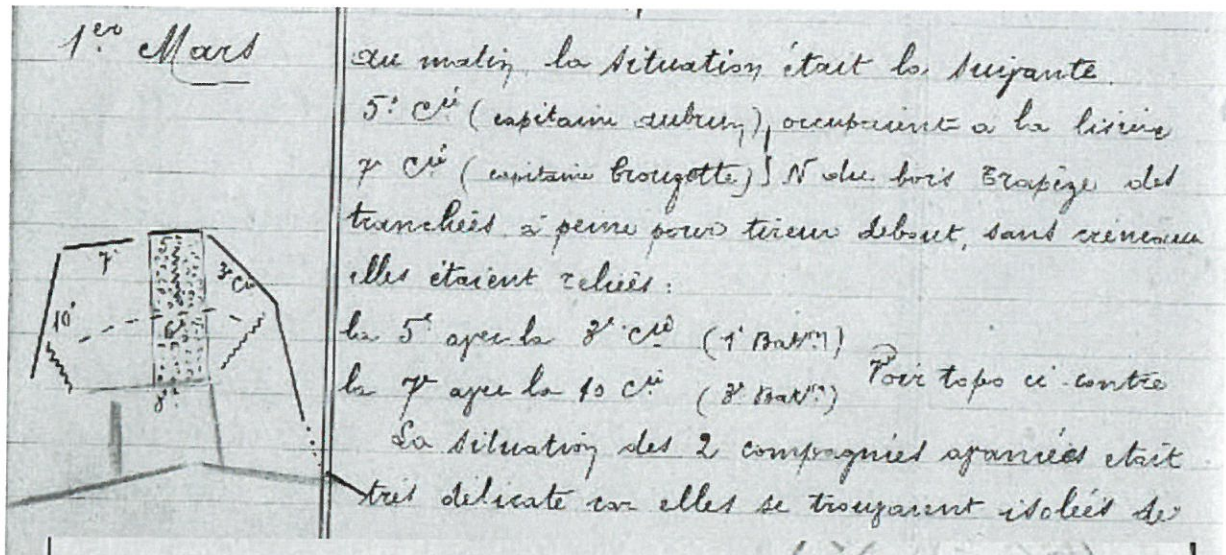 1er Mars
au matin la situation était la suivante.
5e Cie (capitaine Aubrun) occupaient à la lisière
7e Cie (capitaine Brougotte) N du bois Trapèze des
tranchées à peine pour tireur debout, sans créneaux
elles étaient reliées :
la 5e avec la 3e Cie (1e Baton)
la 7e avec la 10 Cie (3e Baton) Voir topo ci-contre
La situation des 2 compagnies avancées était
très délicate car elles se trouvaient isolées de
7e
3e Cie
10e
8e